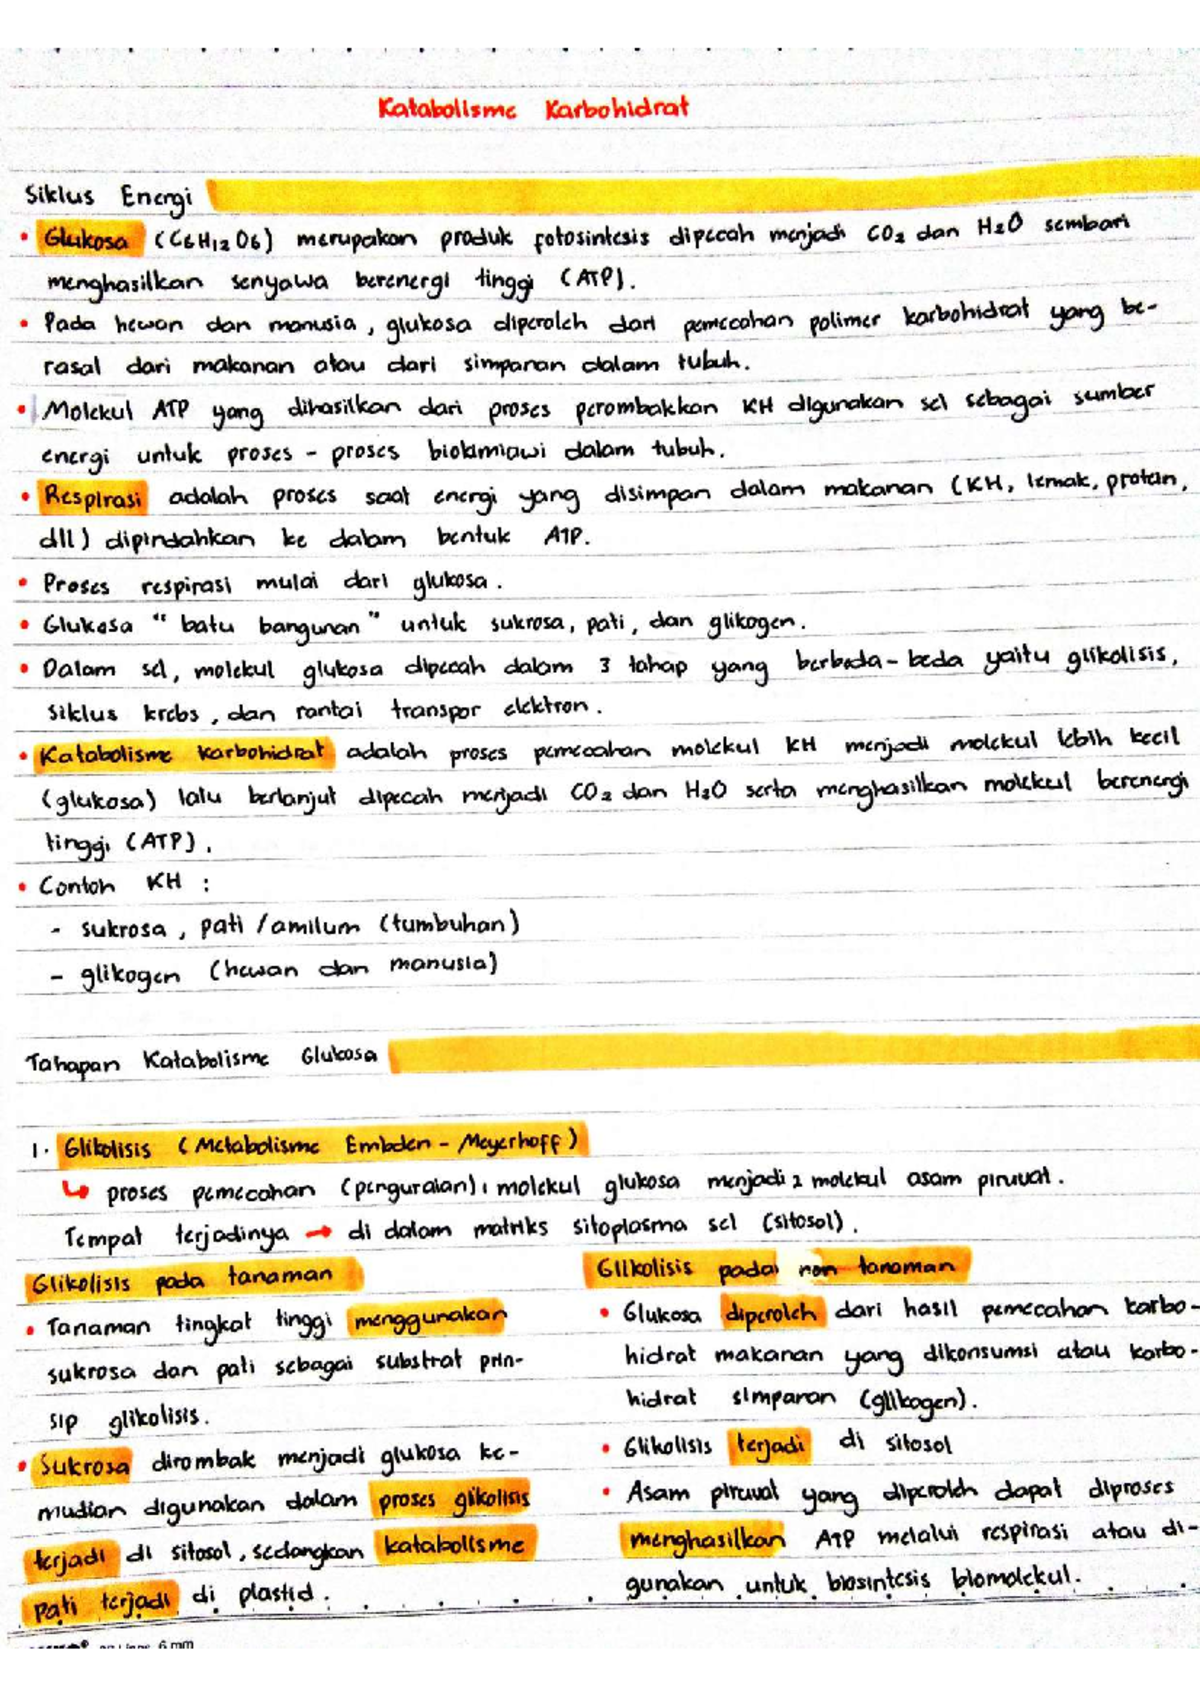 Katabolisme Karbohidrat
Siklus Energi
• Glukosa (C6H12O6) merupakan produk fotosintesis dipecah menjadi CO2 dan H2O sembari
menghasilkan senyawa berenergi tinggi (ATP).
• Pada hewan dan manusia, glukosa diperoleh dari pemecahan polimer karbohidrat yang be-
rasal dari makanan atau dari simpanan dalam tubuh.
• Molekul ATP yang dihasilkan dari proses perombakkan KH digunakan sel sebagai sumber
energi untuk proses - proses biokimiawi dalam tubuh.
• Respirasi adalah proses saat energi yang disimpan dalam makanan (KH, lemak, protein,
dll) dipindahkan ke dalam bentuk ATP.
• Proses respirasi mulai dari glukosa.
• Glukosa "batu bangunan" untuk sukrosa, pati, dan glikogen.
• Dalam sel, molekul glukosa dipecah dalam 3 tahap yang berbeda-beda yaitu glikolisis,
siklus krebs, dan rantai transpor elektron.
• Katabolisme karbohidrat adalah proses pemecahan molekul KH menjadi molekul lebih kecil
(glukosa) lalu berlanjut dipecah menjadi CO2 dan H2O serta menghasilkan molekul berenergi
tinggi (ATP).
• Contoh KH :
- sukrosa, pati /amilum (tumbuhan)
- glikogen (hewan dan manusia)
Tahapan Katabolisme Glukosa
1. Glikolisis (Metabolisme Embden - Meyerhoff)
↳ proses pemecahan (penguraian) 1 molekul glukosa menjadi 2 molekul asam piruvat.
Tempat terjadinya → di dalam matriks sitoplasma sel (sitosol).
Glikolisis pada tanaman
• Tanaman tingkat tinggi menggunakan
sukrosa dan pati sebagai substrat prin-
sip glikolisis.
• Sukrosa dirombak menjadi glukosa ke-
mudian digunakan dalam proses glikolisis
terjadi di sitosol, sedangkan katabolisme
pati terjadi di plastid.
Glikolisis pada non tanaman
• Glukosa diperoleh dari hasil pemecahan karbo-
hidrat makanan yang dikonsumsi atau karbo-
hidrat simpanan (glikogen).
• Glikolisis terjadi di sitosol
• Asam piruvat yang diperoleh dapat diproses
menghasilkan ATP melalui respirasi atau di-
gunakan untuk biosintesis biomolekul.
6 mm